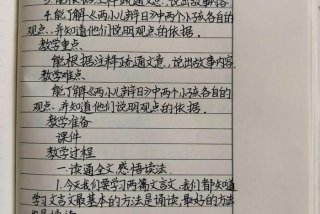 3.能根据注释疏通文意,说出故事内容.
4.能了解《两小儿辩日》中两个小孩各自的
观点,并知道他们说明观点的依据.
教学重点
能根据注释疏通文意,说出故事内容.
教学难点
能了解《两小儿辩日》中两个小孩各自的
观点,并知道他们说明观点的依据.
教学准备
课件
教学过程
一.读通全文感悟读法.
1.今天我们要学习两篇文言文.我们都知道
学习文言文最基本的方法是诵读,最好的方法